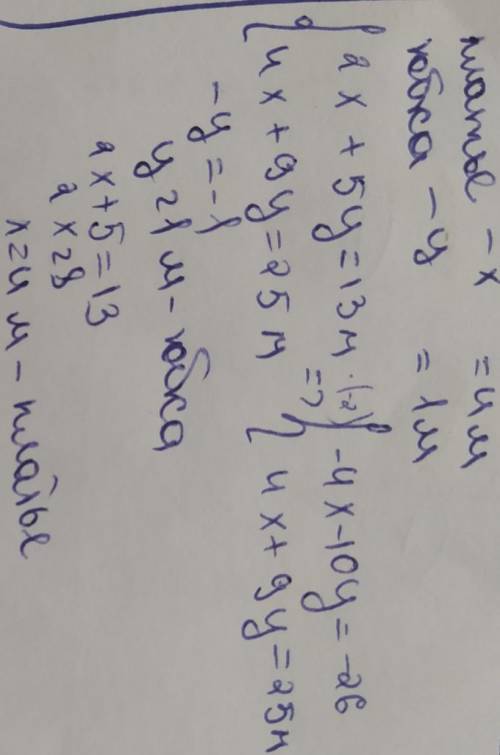 платье - x = 4м
юбка - y = 1м
{ 2x + 5y = 13м ·(-2) => { -4x - 10y = -26
{ 4x + 9y = 25м { 4x + 9y = 25м
-y = -1
y = 1 м - юбка
2x + 5 = 13
2x = 8
x = 4 м - платье